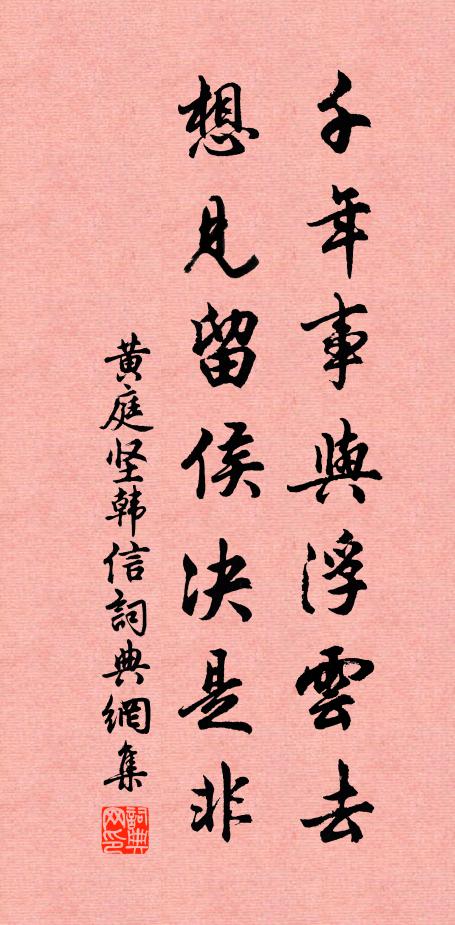 千年事與浮雲去
想見留侯决是非
黄庭坚韩信詞典網集
詞典网印